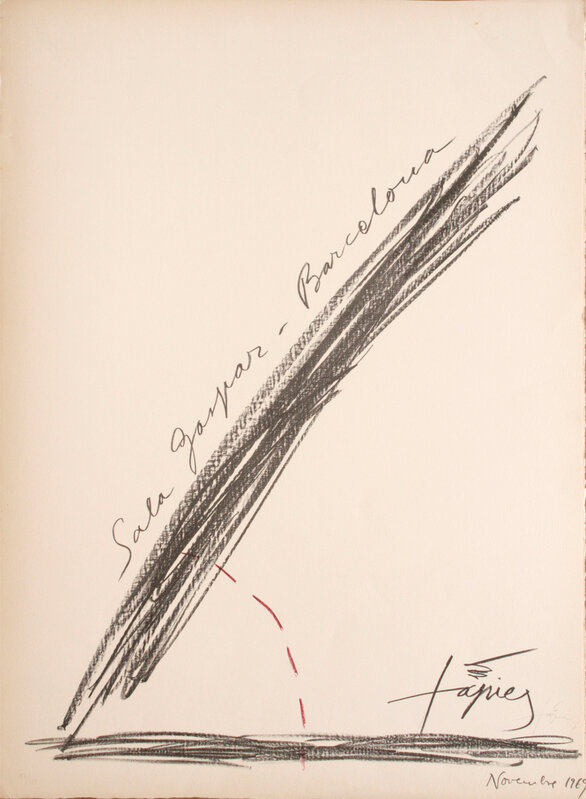 Sala Gaspar - Barcelona
tàpies
Novembre 1969